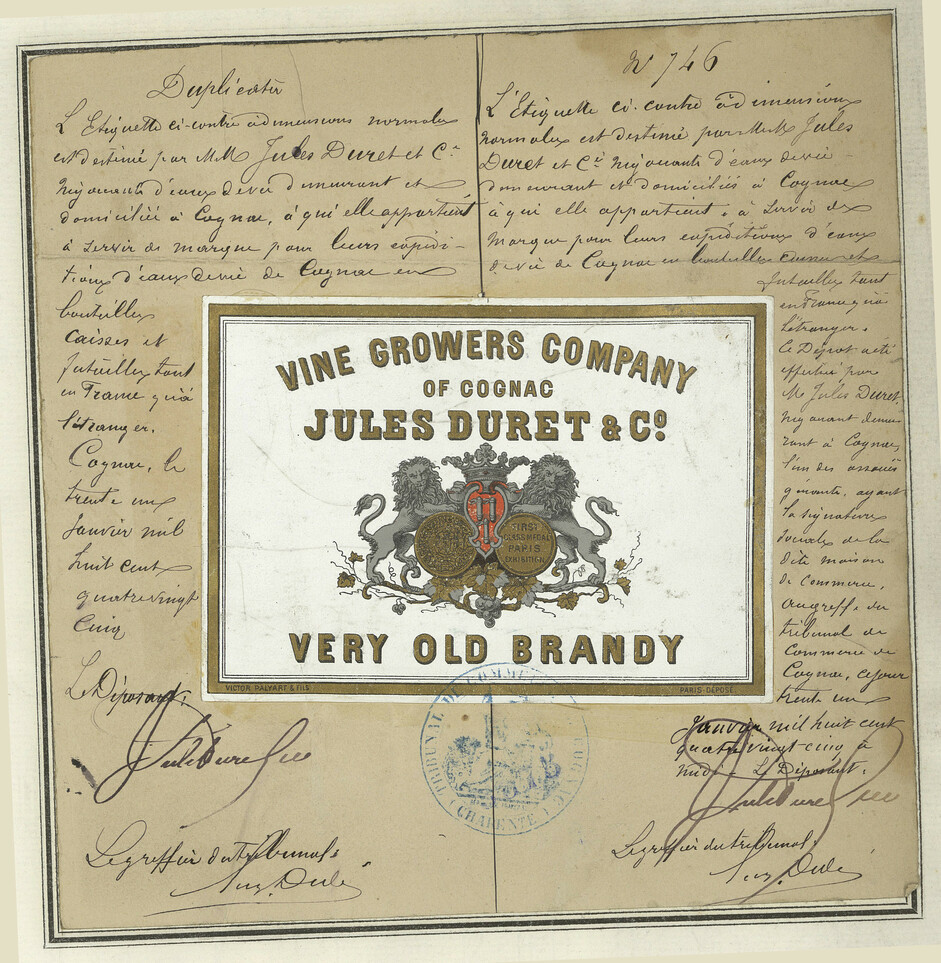 Duplicata
L'Etiquette ci-contre à dimensions normales
est destiné par MM Jules Duret et Cie
négociants d'eaux de vie demeurant et
domiciliés à Cognac, à qui elle appartient
à servir de marque pour leurs expédi-
tions d'eaux de vie de Cognac en
bouteilles
caisses et
futailles tant
en France qu'à
l'étranger.
Cognac, le
trente un
Janvier mil
huit cent
quatre vingt
Cinq
Le Déposant,
Jules Duret & Cie
Le greffier du tribunal:
N 746
L'Etiquette ci-contre à dimensions
normales est destiné par MM. Jules
Duret et Cie négociants d'eaux de vie
demeurant et domiciliés à Cognac
à qui elle appartient, à servir de
marque pour leurs expéditions d'eaux
de vie de Cognac en bouteilles caisses et
futailles tant
en France qu'à
l'étranger.
Ce Dépot a été
effectué par
M. Jules Duret,
négociant demeu-
rant à Cognac,
l'un des associés
gérants, ayant
la signature
sociale de la
dite maison
de Commerce,
au greffe du
tribunal de
Commerce de
Cognac, ce jour
trente un
Janvier mil huit cent
quatre vingt cinq à
midi. Le Déposant.
Jules Duret & Cie
Le greffier du tribunal,
VINE GROWERS COMPANY
OF COGNAC
JULES DURET & Cº
FIRST
CLASS MEDAL
PARIS
EXHIBITION
VERY OLD BRANDY
VICTOR PALYART & FILS
PARIS-DÉPOSÉ
TRIBUNAL DE COMMERCE
(CHARENTE)